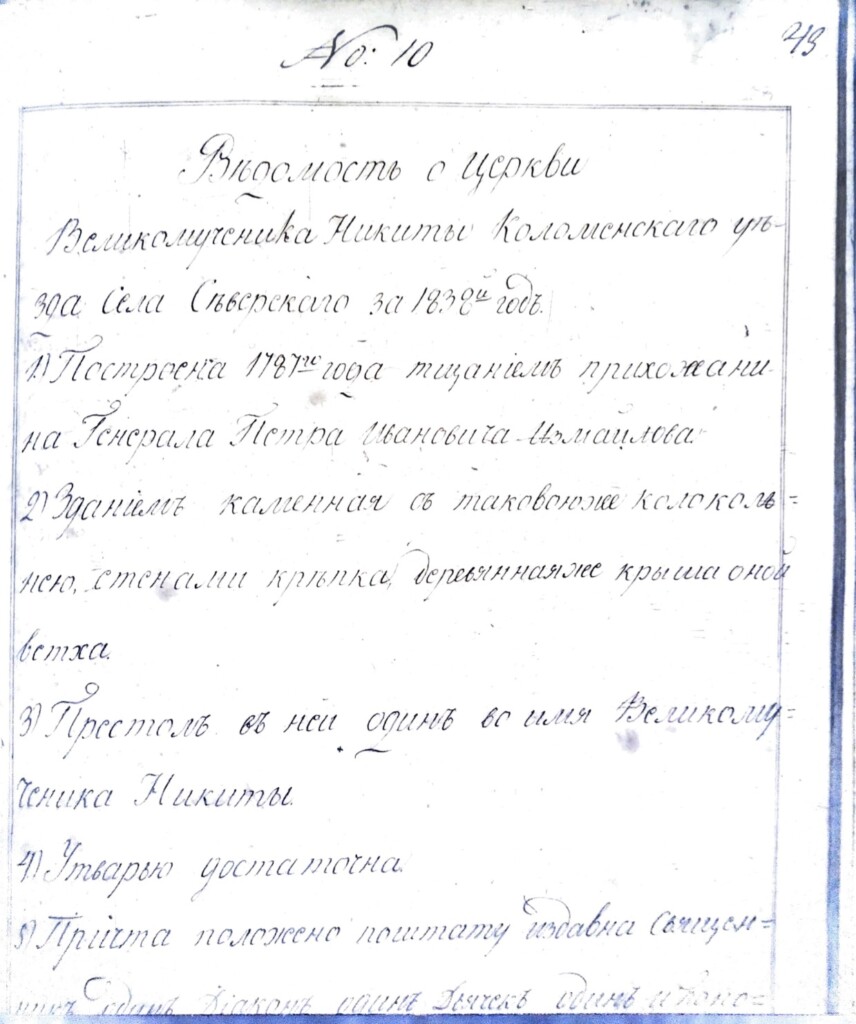 No: 10
43
Вѣдомость о Церкви
Великомученика Никиты Коломенскаго уѣ-
зда Села Сѣверскаго за 1838й годъ.
1) Построена 1787го года тщаніемъ прихожани-
на Генерала Петра Ивановича Измайлова.
2) Зданіемъ каменная съ таковоюже колоколь=
нею, стенами крѣпка, деревяннаяже крыша оной
ветха.
3) Престолъ въ ней одинъ во имя Великому=
ченика Никиты.
4) Утварью достаточна.
5) Причта положено поштату издавна Священ=
никъ одинъ Діаконъ одинъ Дьячекъ одинъ и Поно=